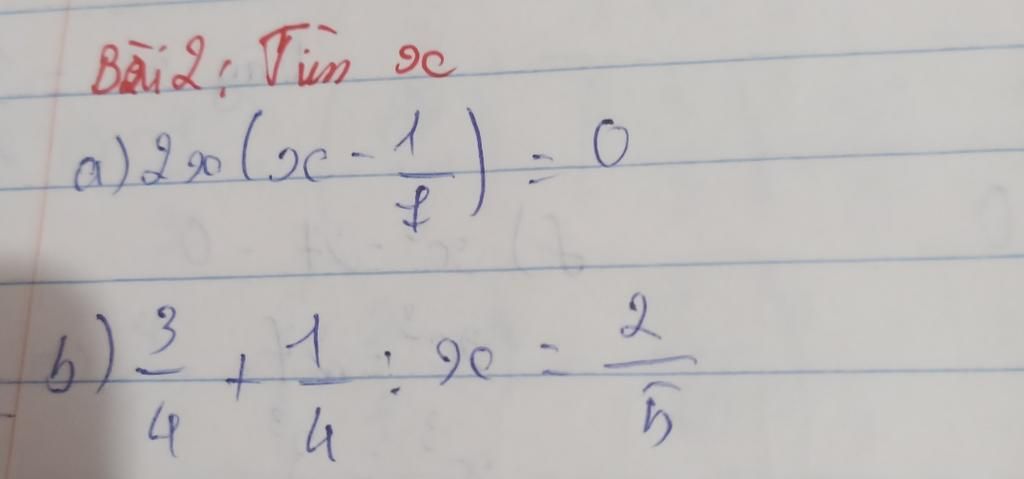 Bài 2: Tìm x
a) 2x(x - 1/7) = 0
b) 3/4 + 1/4 : x = 2/5